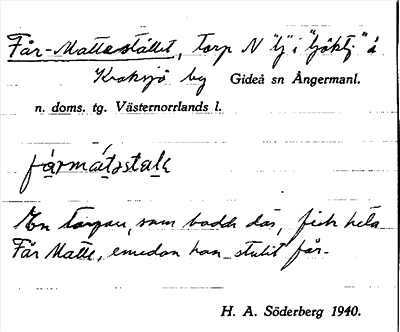 Får-Mattestället, torp N "tj" i "tjäktj" å
Kraksjö by Gideå sn Ångermanl.
n. doms. tg. Västernorrlands l.
fårmátəstalε
En torpare, som bodde där, fick heta
Får Matte, emedan han stulit får.
H. A. Söderberg 1940.